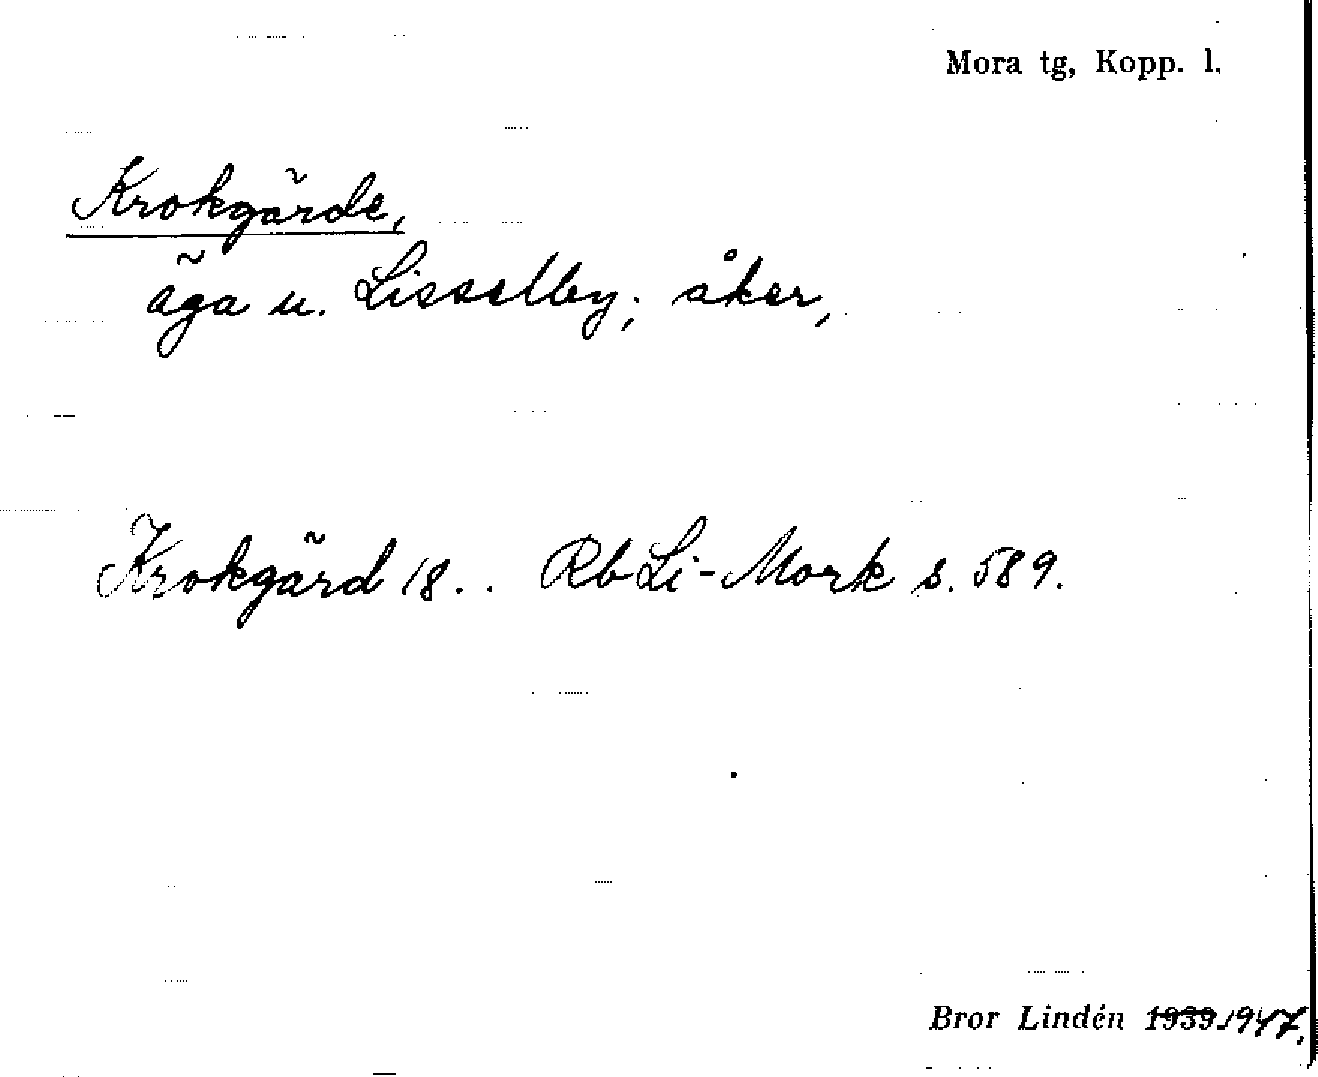 Mora tg, Kopp. l.
Krokgärde,
äga u. Lisselby; åker,
Krokgärd 18.. Rb Li-Mork s. 589.
Bror Lindén 1939. 1947.